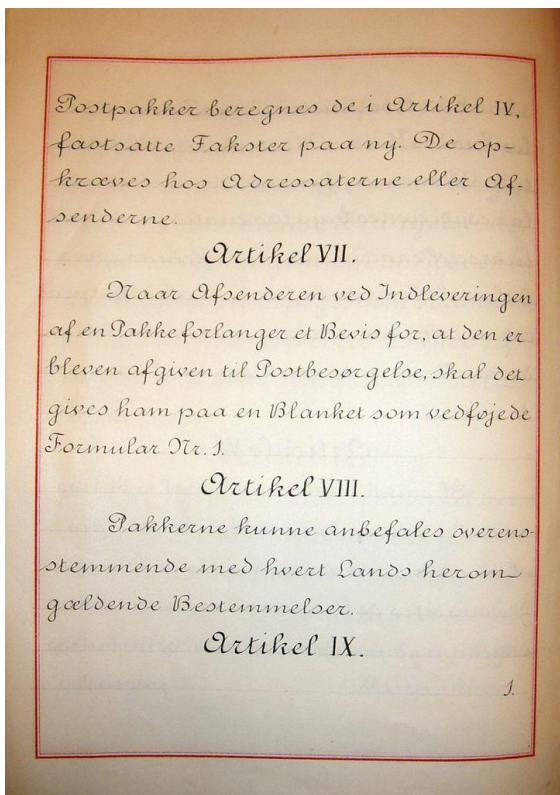 Postpakker beregnes de i Artikel IV,
fastsatte Takster paa ny. De op-
kræves hos Adressaterne eller Af-
senderne.
Artikel VII.
Naar Afsenderen ved Indleveringen
af en Pakke forlanger et Bevis for, at den er
bleven afgiven til Postbesørgelse, skal det
gives ham paa en Blanket som vedføjede
Formular Nr. 1.
Artikel VIII.
Pakkerne kunne anbefales overens-
stemmende med hvert Lands herom
gældende Bestemmelser.
Artikel IX.
1.